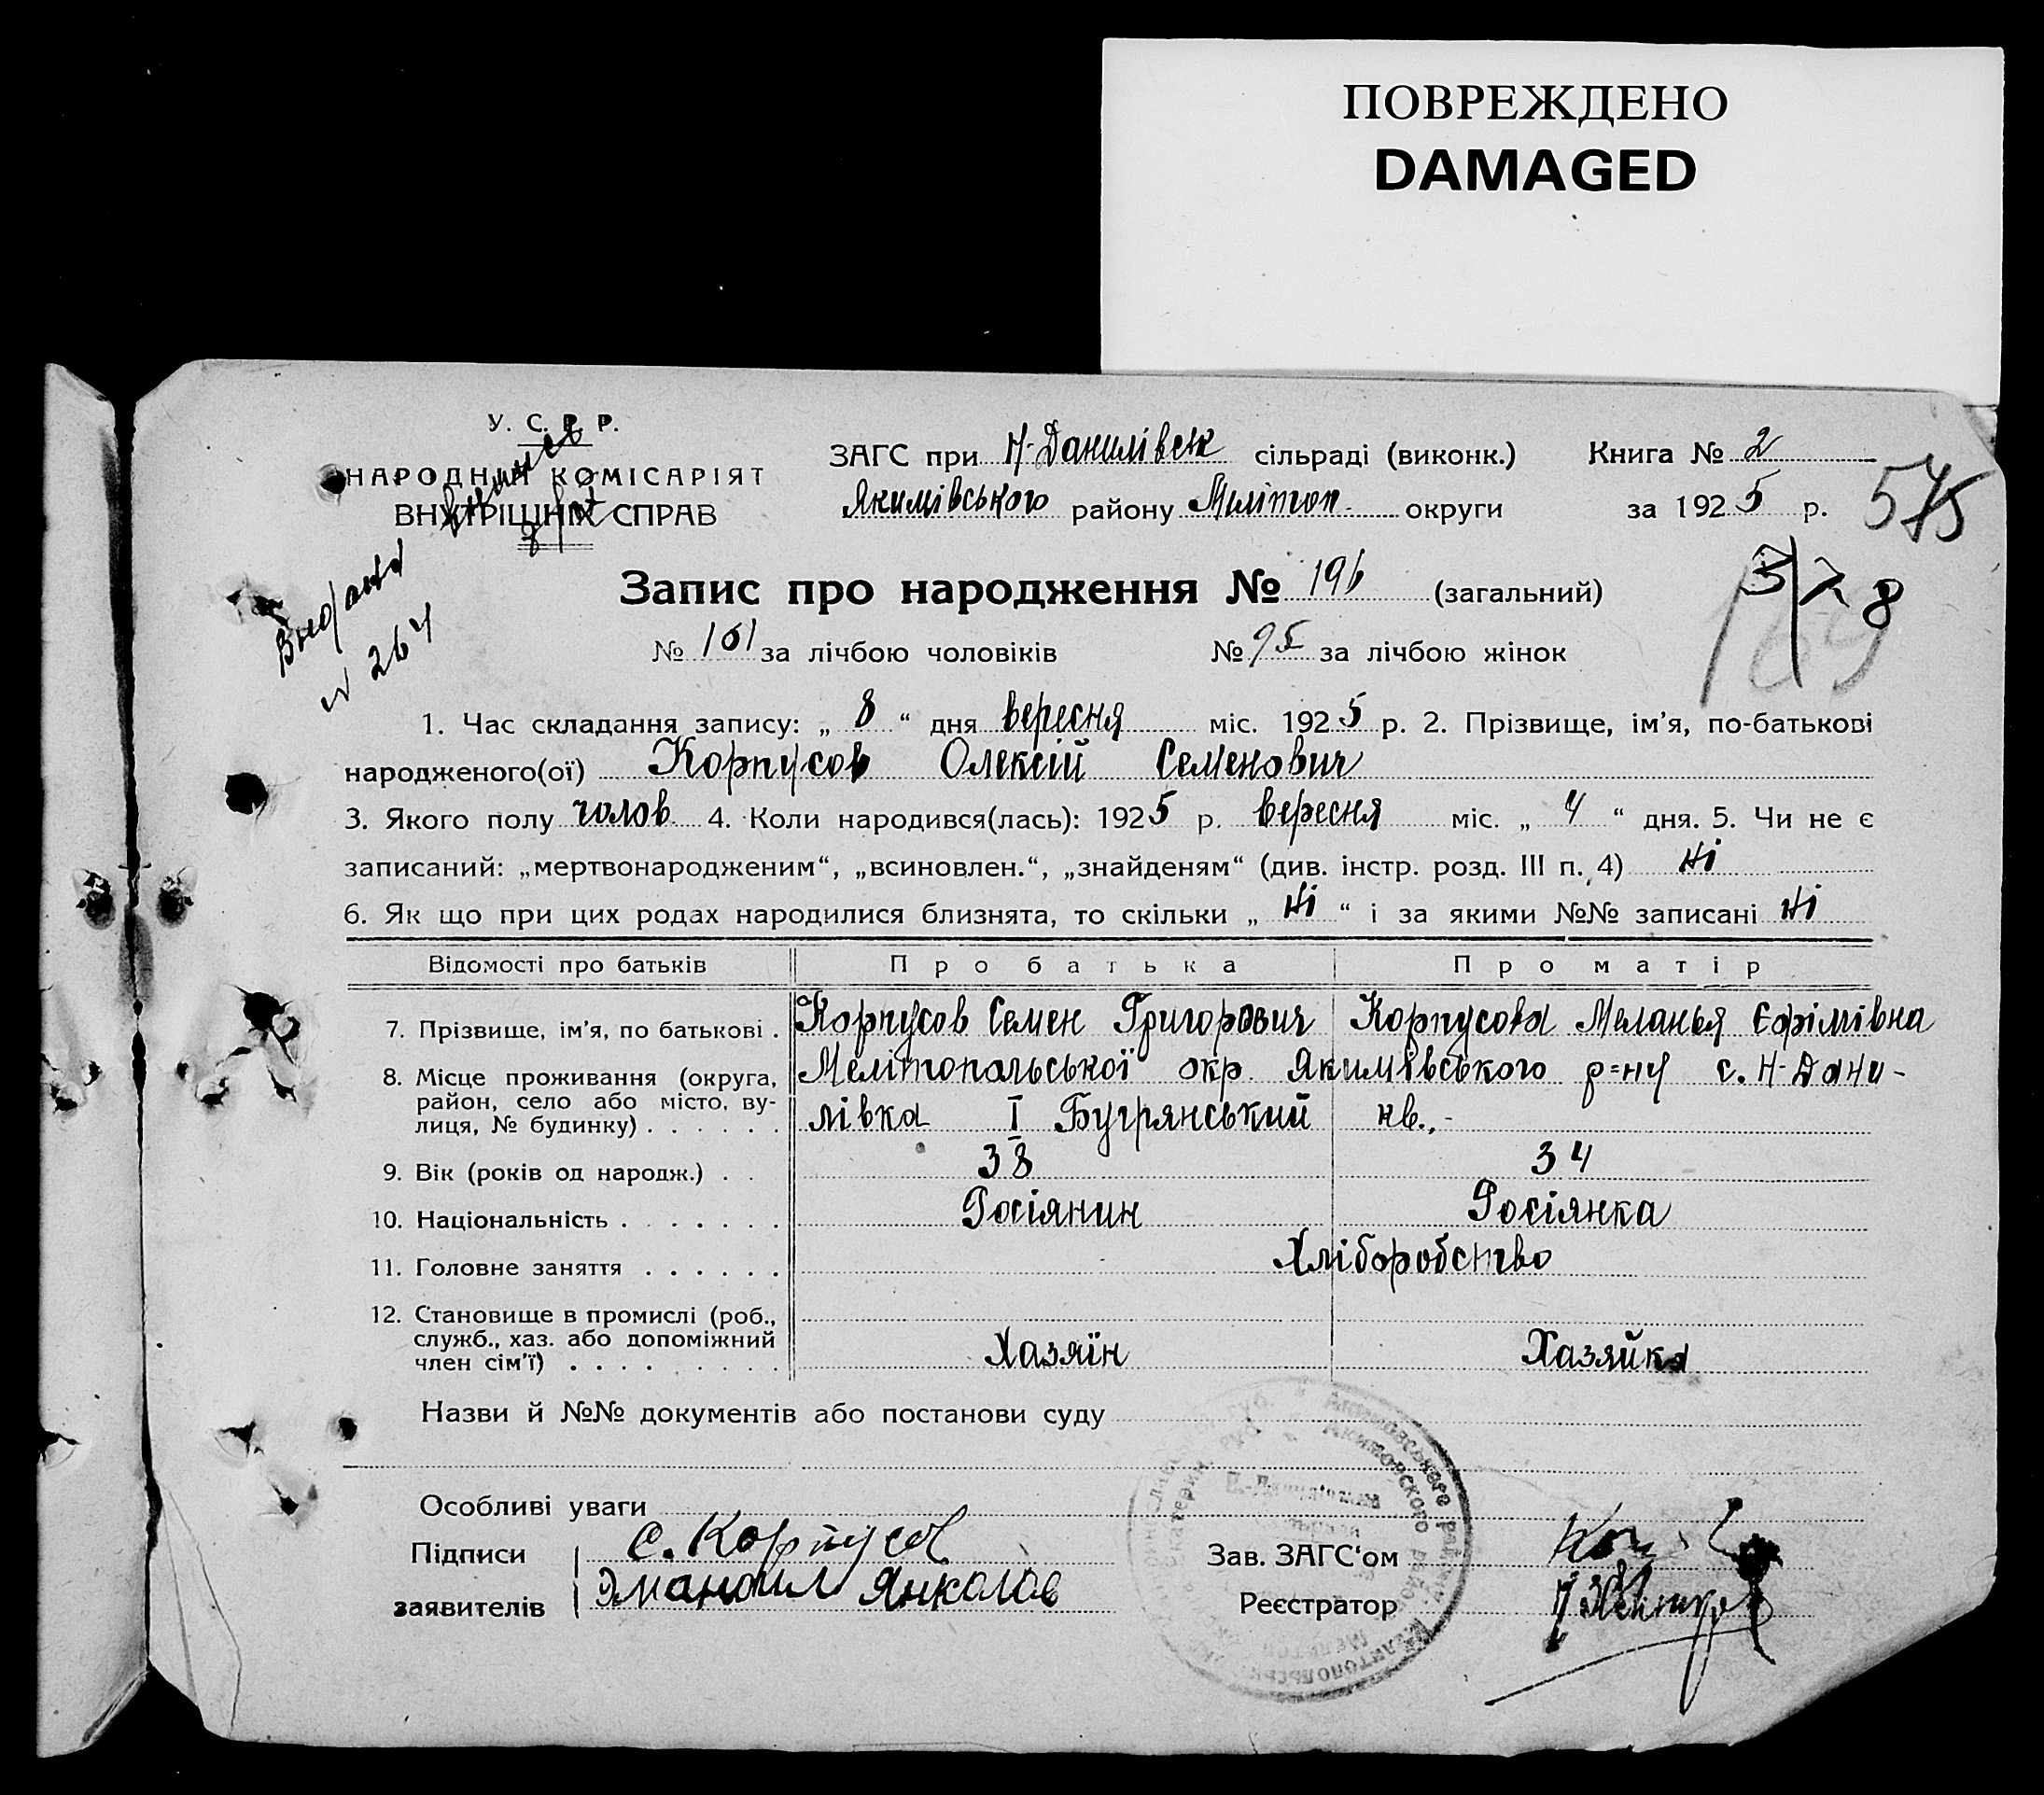 ПОВРЕЖДЕНО
DAMAGED
У. С. Р. Р.
НАРОДНИЙ КОМІСАРІЯТ
ВНУТРІШНІХ СПРАВ
ЗАГС при Н-Данилівск сільраді (виконк.) Книга № 2
Якимівського району Меліт​оп. округи за 1925 р.
575
Видана
№ 264
Запис про народження № 196 (загальний)
578
169
№ 101 за лічбою чоловіків № 95 за лічбою жінок
1. Час складання запису: „ 8 “ дня вересня міс. 1925 р. 2. Прізвище, ім’я, по-батькові
народженого(ої) Корпусов Олексій Семенович
3. Якого полу чолов. 4. Коли народився(лась): 1925 р. вересня міс. „ 4 “ дня. 5. Чи не є
записаний: „мертвонародженим“, „всиновлен.“, „знайденям“ (див. інстр. розд. III п. 4) ні
6. Як що при цих родах народилися близнята, то скільки „ ні “ і за якими №№ записані ні
Відомості про батьків Про батька Про матір
7. Прізвище, ім’я, по батькові . Корпусов Семен Григорович Корпусова Меланья Єфімівна
8. Місце проживання (округа, Мелітопольської окр. Якимівського р=ну с. Н-Дани-
район, село або місто, ву-
лиця, № будинку) . . . . . . лівка I Бугрянський кв.,-
9. Вік (років од народж.) . . 38 34
10. Національність . . . . . . . Росіянин Росіянка
11. Головне заняття . . . . . . Хліборобство
12. Становище в промислі (роб.,
служб., хаз. або допоміжний
член сім’ї) . . . . . . . . . Хазяїн Хазяйка
Назви й №№ документів або постанови суду
Особливі уваги
Підписи С. Корпусов Зав. ЗАГС‘ом
заявителів Янколов Реєстратор